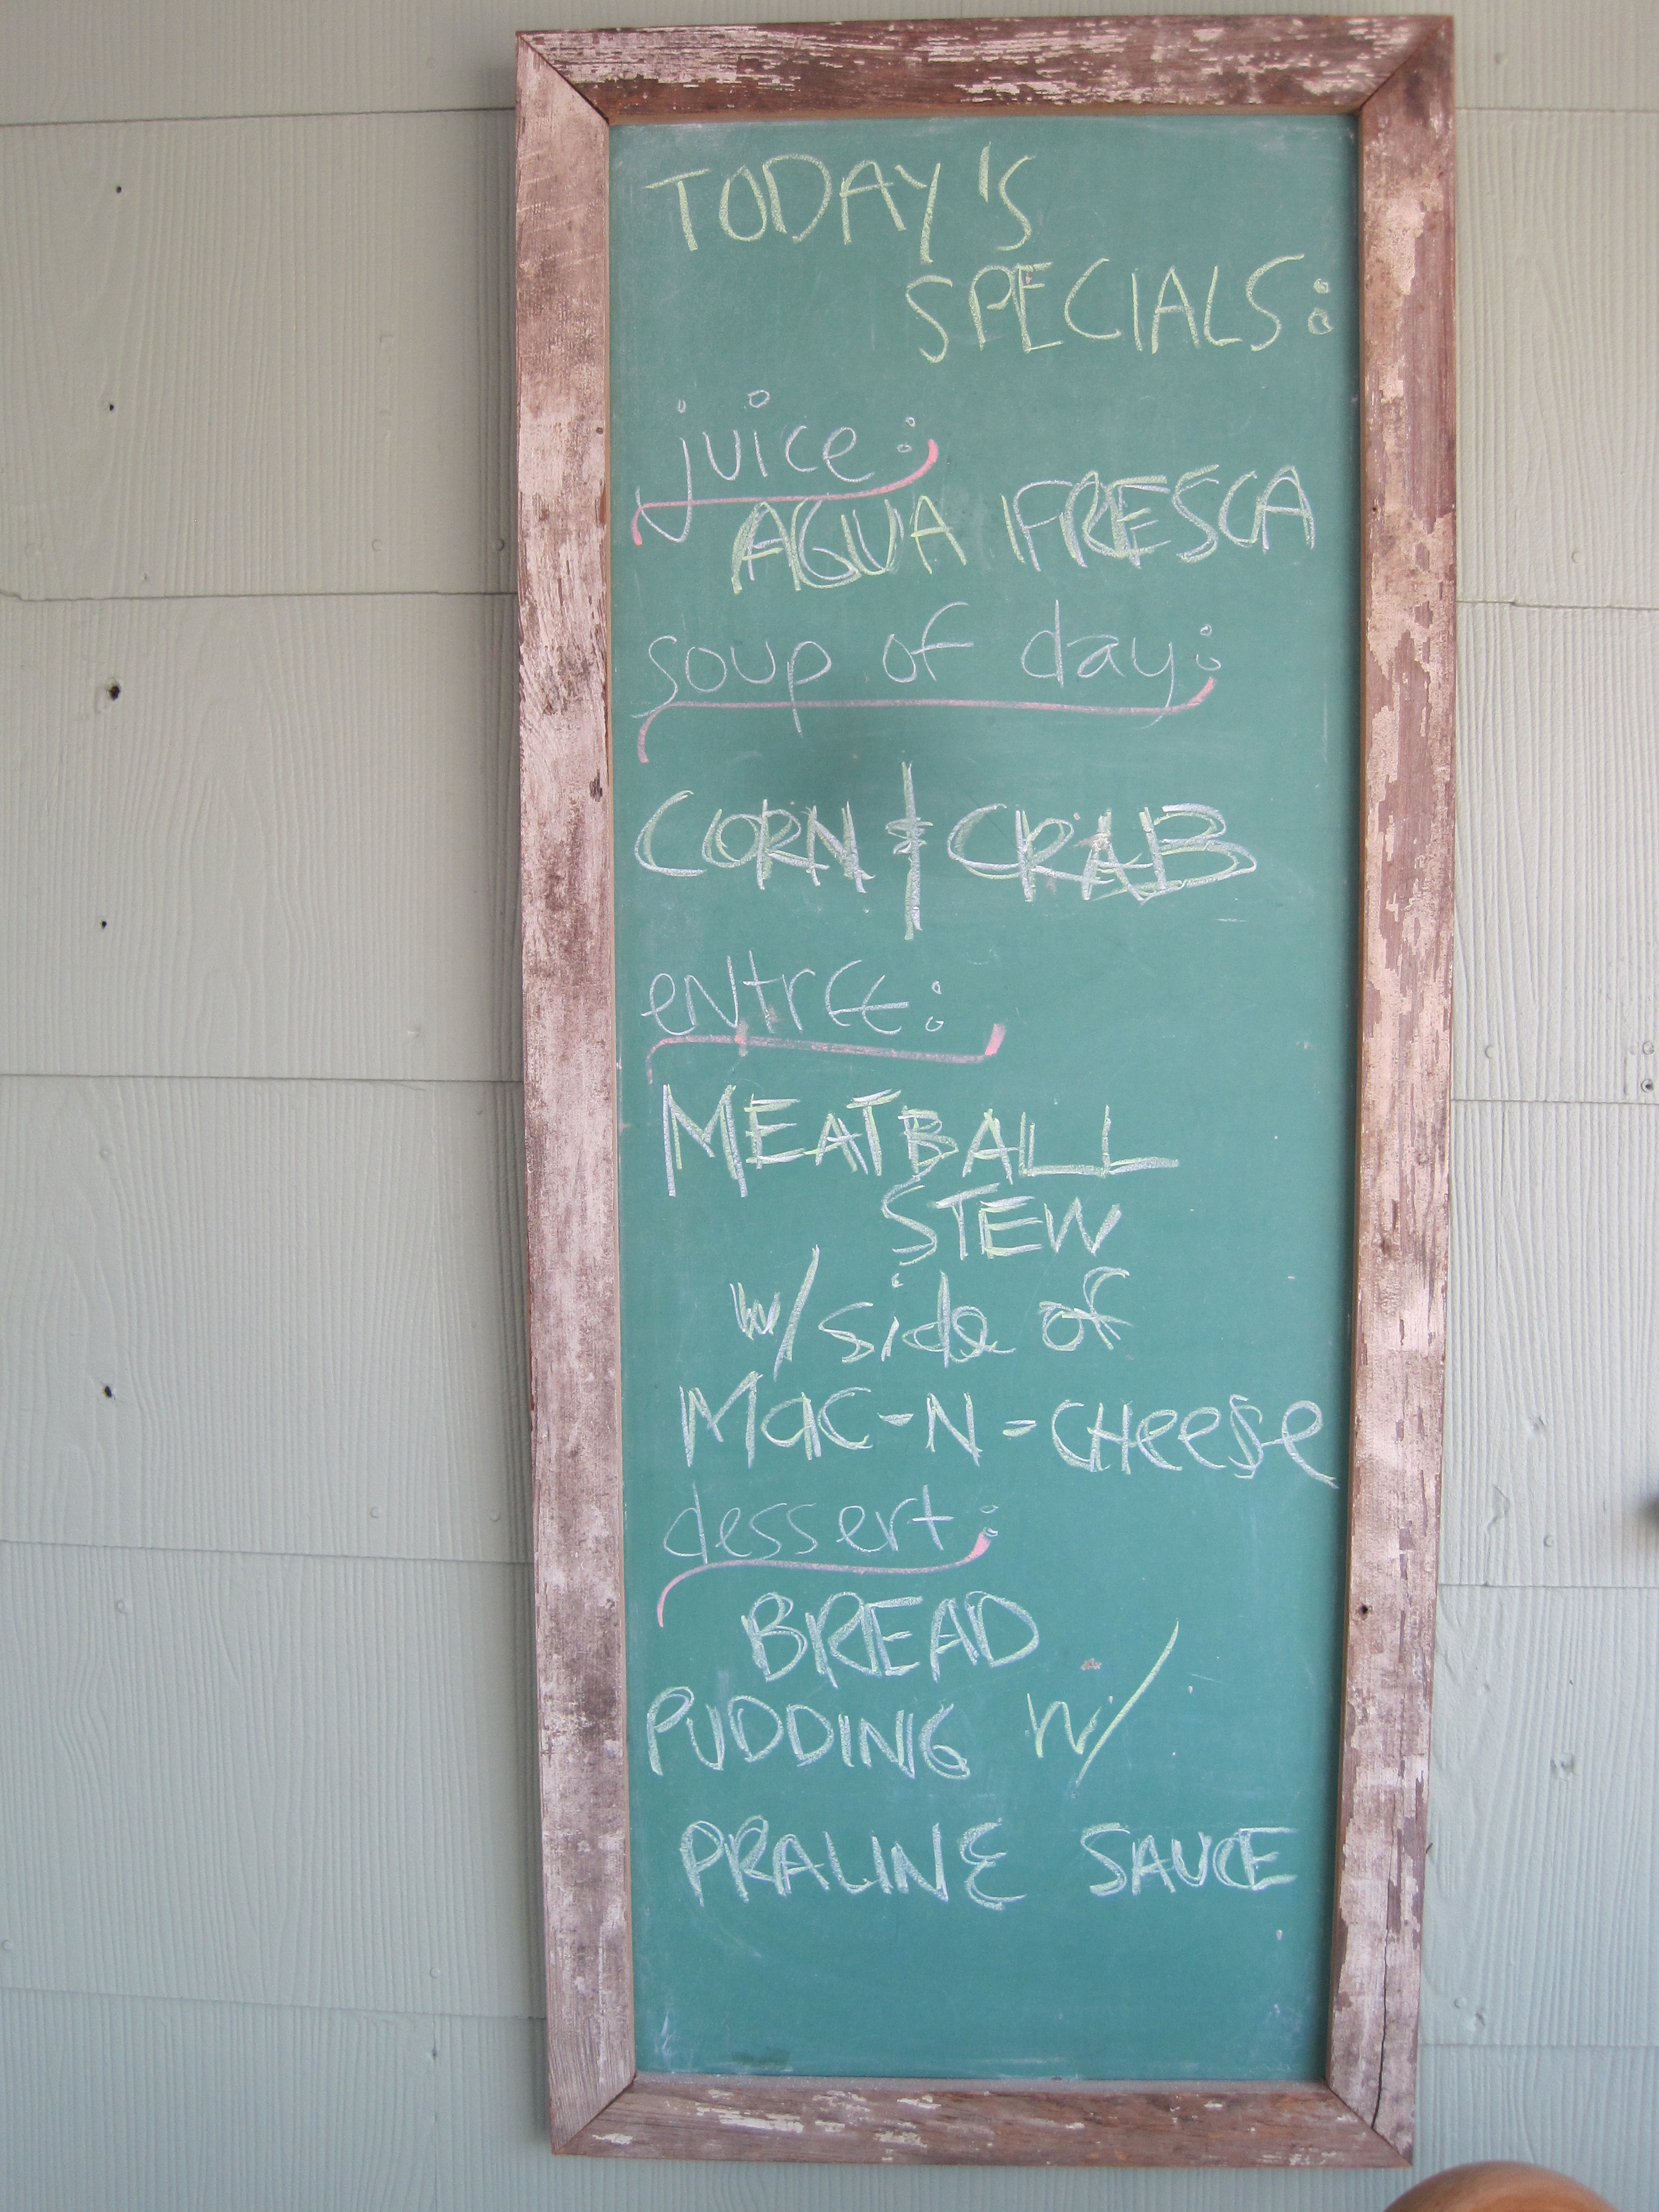 TODAY'S
SPECIALS:
juice:
AGUA FRESCA
soup of day:
CORN & CRAB
entree:
MEATBALL
STEW
w/ side of
Mac-N-CHeese
dessert:
BREAD
PUDDING w/
PRALINE SAUCE